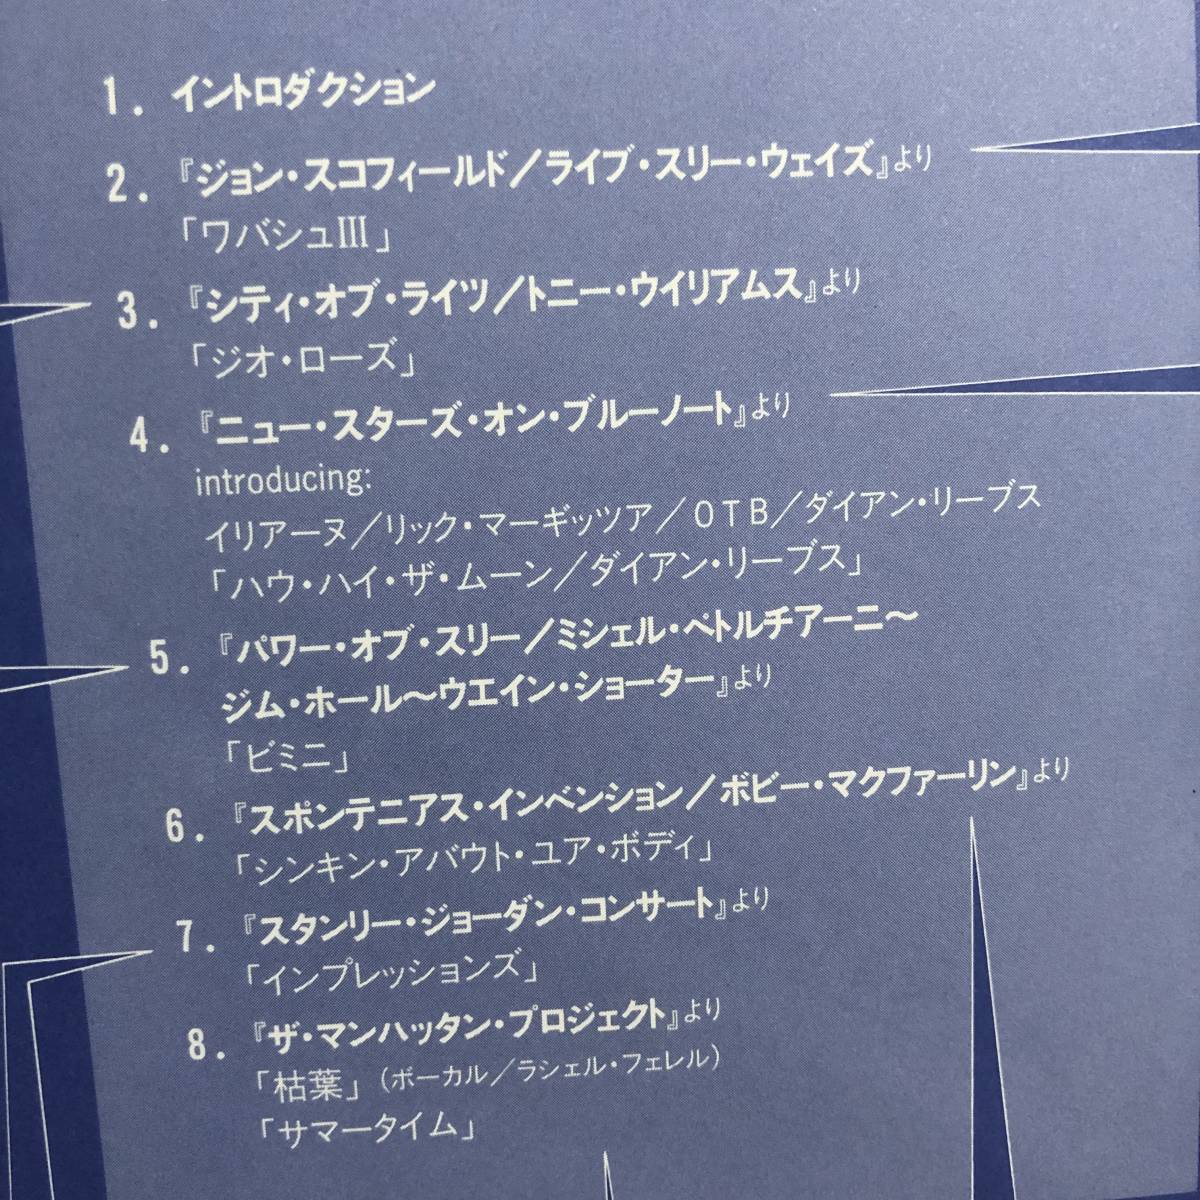 1. イントロダクション
2. 『ジョン・スコフィールド/ライブ・スリー・ウェイズ』より
「ワバシュIII」
3. 『シティ・オブ・ライツ/トニー・ウイリアムス』より
「ジオ・ローズ」
4. 『ニュー・スターズ・オン・ブルーノート』より
introducing:
イリアーヌ/リック・マーギッツア/OTB/ダイアン・リーブス
「ハウ・ハイ・ザ・ムーン/ダイアン・リーブス」
5. 『パワー・オブ・スリー/ミシェル・ペトルチアーニ〜
ジム・ホール〜ウエイン・ショーター』より
「ビミニ」
6. 『スポンテニアス・インベンション/ボビー・マクファーリン』より
「シンキン・アバウト・ユア・ボディ」
7. 『スタンリー・ジョーダン・コンサート』より
「インプレッションズ」
8. 『ザ・マンハッタン・プロジェクト』より
「枯葉」(ボーカル/ラシェル・フェレル)
「サマータイム」